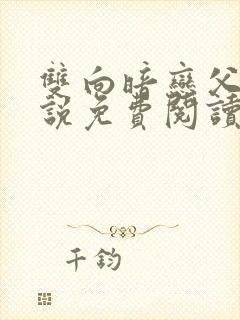 雙向暗戀父
說免費閱讀
千鈞